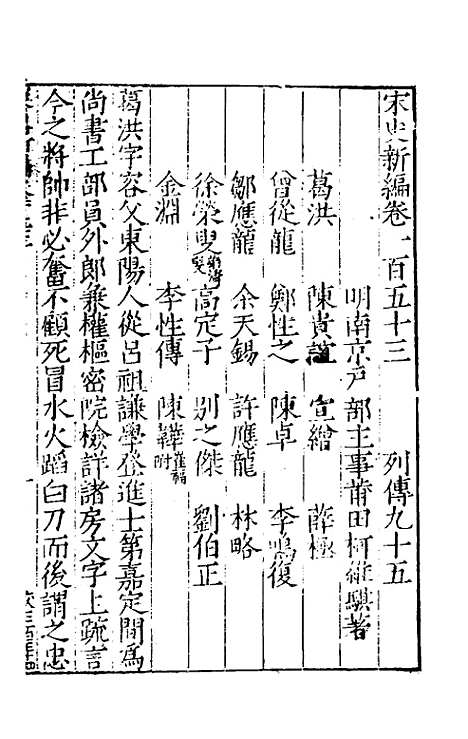 宋史新編卷一百五十三　列傳九十五
明南京戶部主事莆田柯維騏著
葛洪　陳貴誼　宣繒　薛極
曾從龍　鄭性之　陳卓　李鳴復
鄒應龍　余天錫　許應龍　林略
徐榮叟　高定子　別之傑　劉伯正
金淵　李性傳　陳韡　附
葛洪字容父東陽人從呂祖謙學登進士第嘉定間爲
尚書工部員外郎兼權樞密院檢詳諸房文字上疏言
今之將帥非必奮不顧死冒水火蹈白刃而後謂之忠